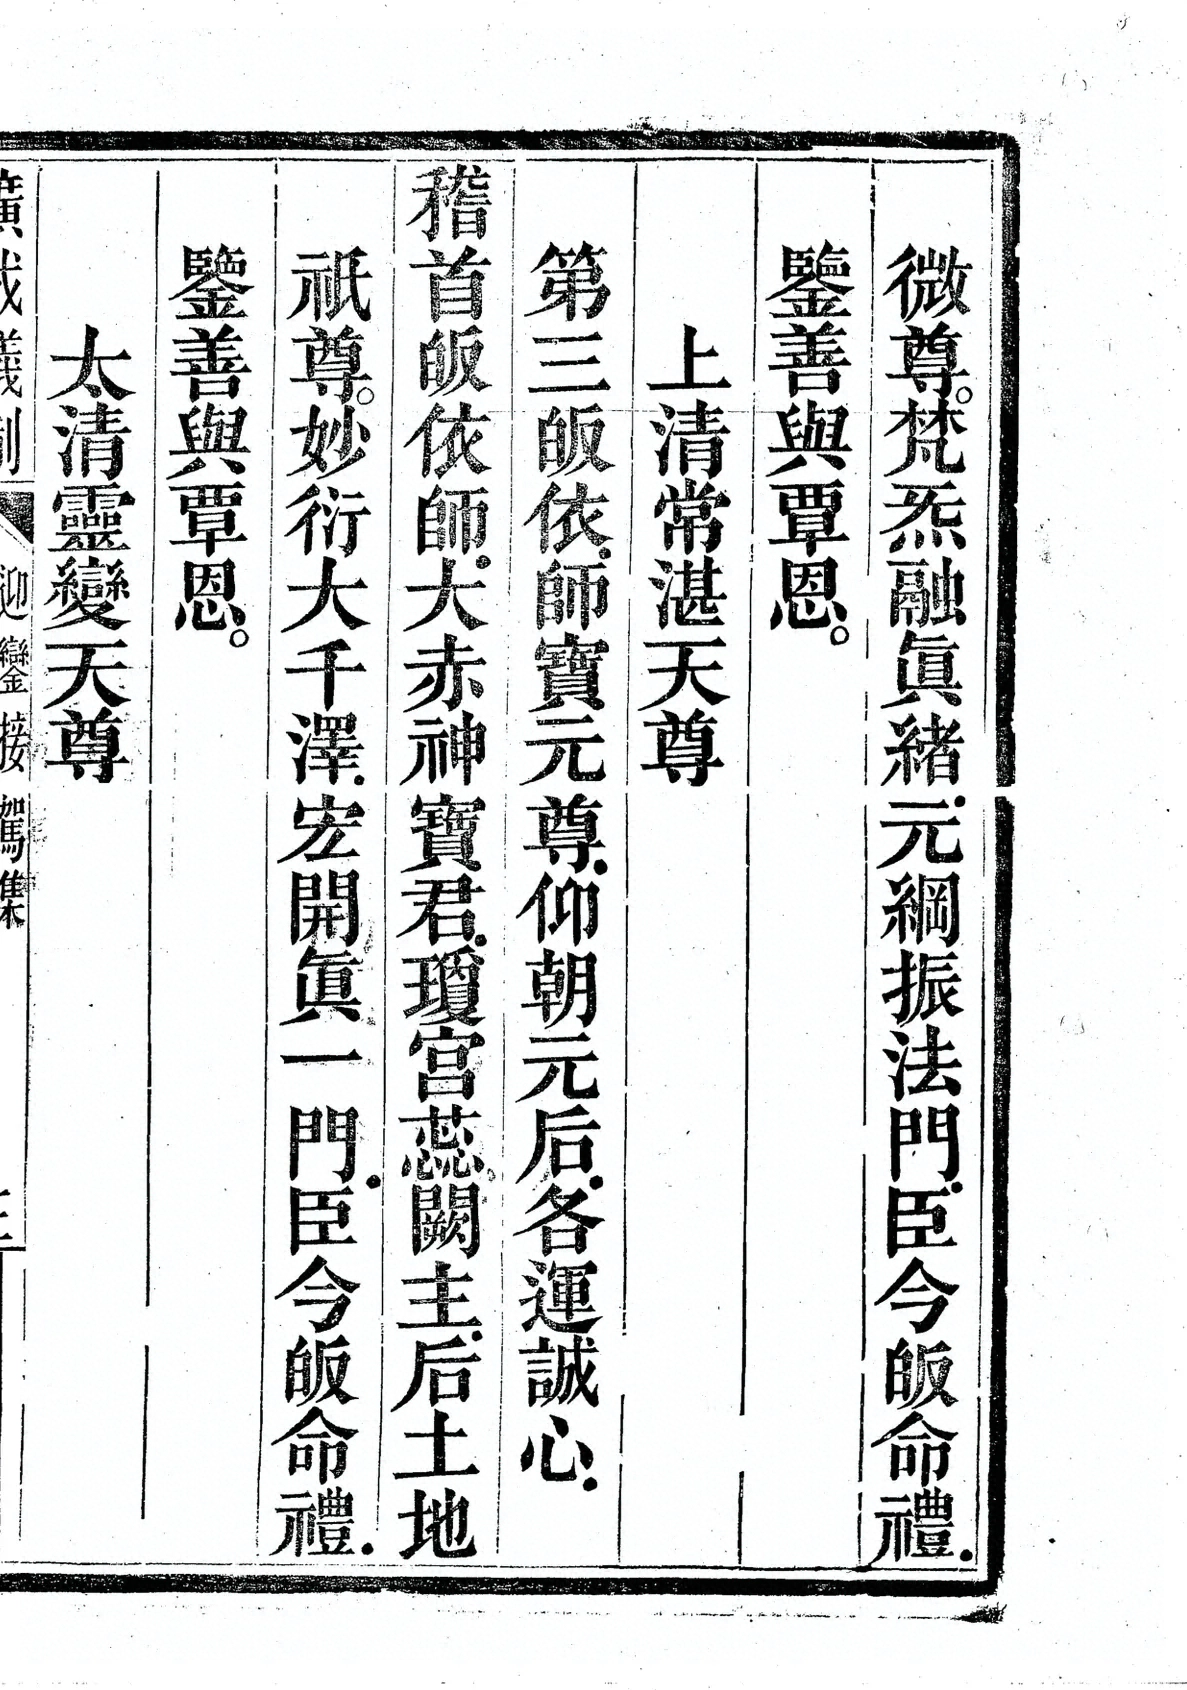 微尊。梵炁融眞緒．元綱振法門．臣今皈命禮．
鑒善與覃恩。
上清常湛天尊
第三皈依．師寶元尊．仰朝元后．各運誠心．
稽首皈依師．大赤神寶君．瓊宮蕊闕主．后土地
祇尊。妙衍大千澤．宏開眞一門．臣今皈命禮．
鑒善與覃恩。
太清靈變天尊
廣成儀制 迎鑾接駕集 三